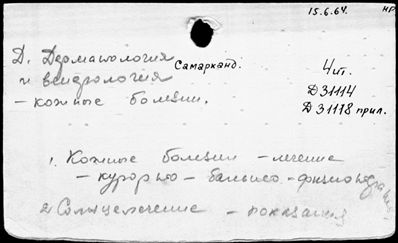 15.6.64. НР
Д. Дерматология
и венерология Самарканд.
- кожные болезни.
4 ит.
Д31114
Д31118 прил.
1. Кожные болезни - лечение
- курорт - бальнео - физиотерапия.
2. Солнцелечение - показания